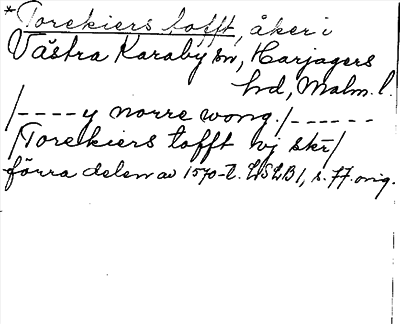 *Torekiers tofft, åker i
Västra Karaby sn, Harjagers
hd, Malm. l.
/----y norre wong./------
/Torekiers tofft vj skr/
förra delen av 1570-t. LSLB1, s. 77. orig.